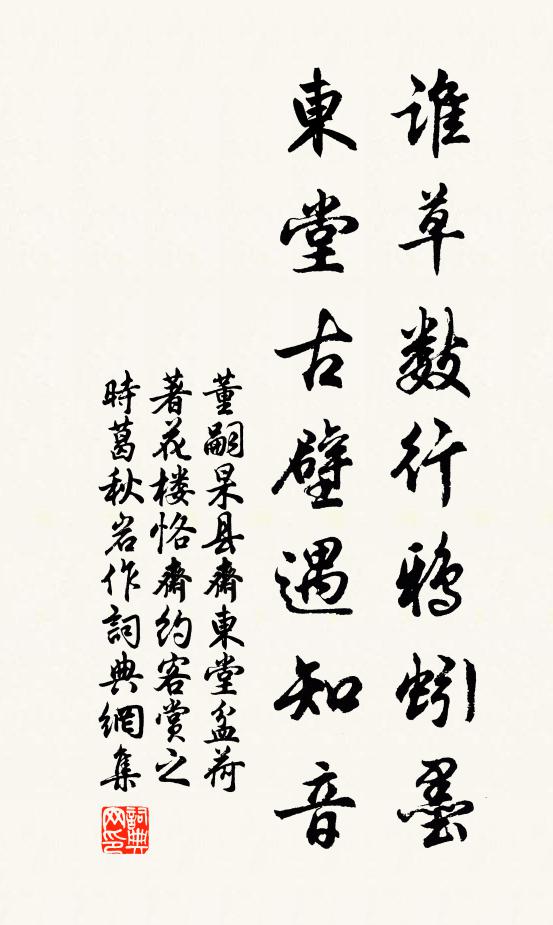 谁草数行鸦蚓墨
東堂古壁遇知音
董嗣杲县齋東堂盆荷
著花楼恪齋約客賞之
時葛秋岩作詞典網集
詞典网印